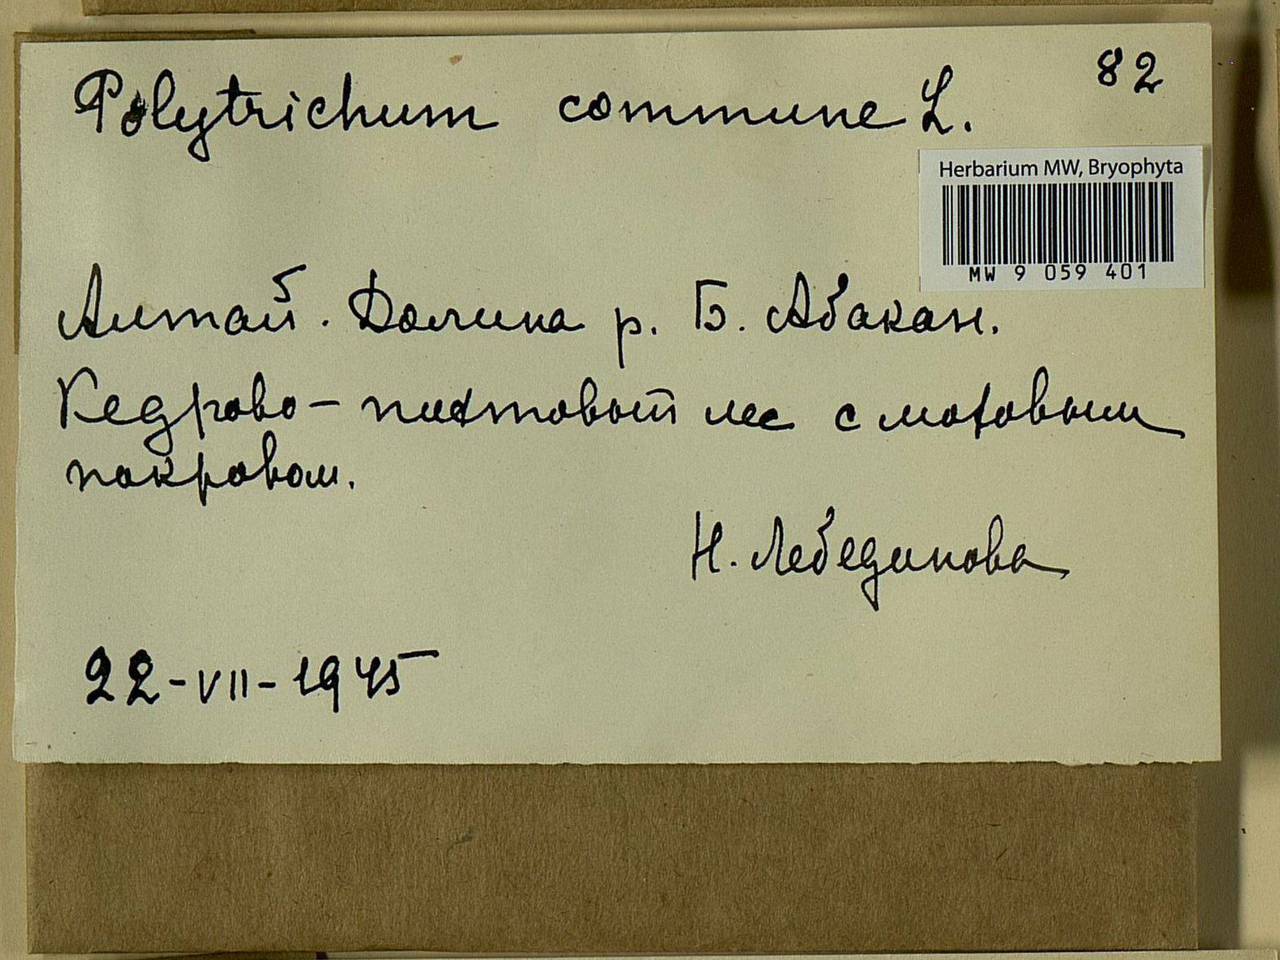 82
Polytrichum commune L.
Herbarium MW, Bryophyta
MW 9 059 401
Алтай. Долина р. Б. Абакан.
Кедрово-пихтовый лес с моховым
покровом.
Н. Лебединова
22-VII-1945